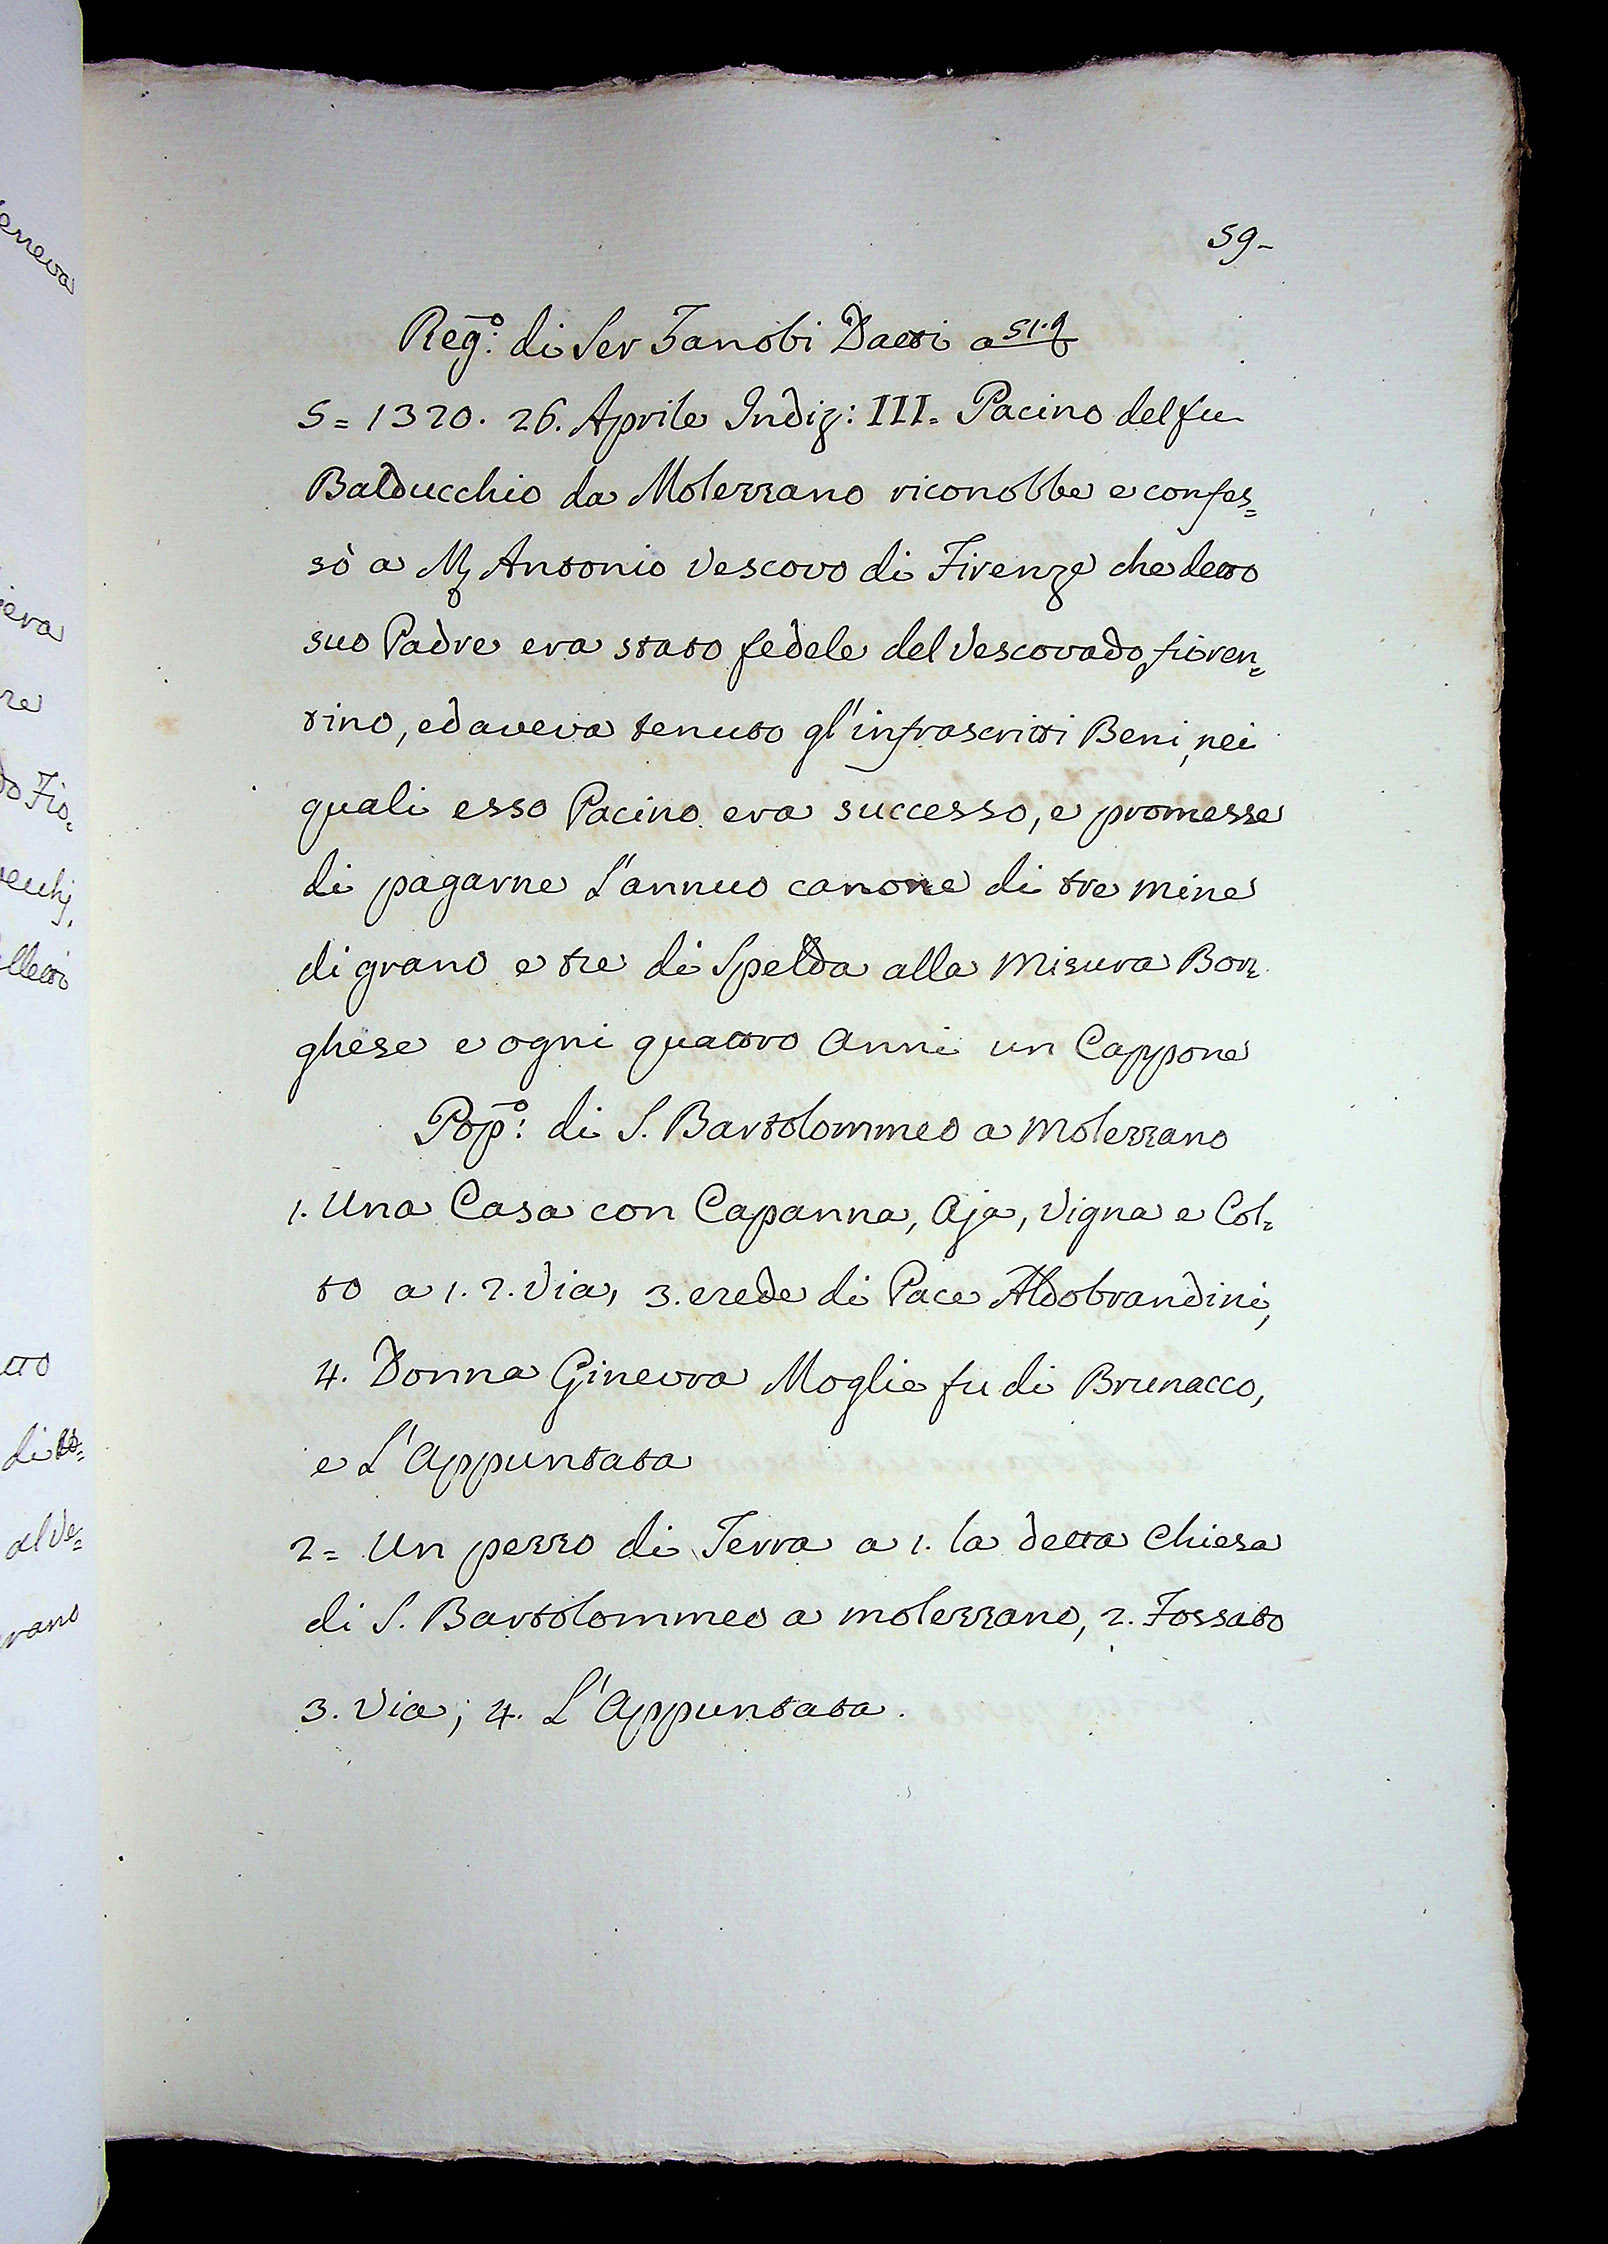 59-
Reg.º di Ser Zanobi Datti a 51.
5= 1320. 26. Aprile Indiz: III. Pacino del fu
Balducchio da Molezzano riconobbe e confes=
sò a M. Antonio Vescovo di Firenze che detto
suo Padre era stato fedele del Vescovado fioren=
tino, ed aveva tenuto gl'infrascritti Beni, nei
quali esso Pacino era successo, e promesse
di pagarne L'annuo canone di tre mine
di grano e tre di Spelda alla Misura Bor=
ghese e ogni quattro Anni un Cappone
Pop.º di S. Bartolommeo a Molezzano
1. Una Casa con Capanna, Aja, Vigna e Col=
to a 1. 2. Via, 3. erede di Pace Aldobrandini,
4. Donna Ginevra Moglie fu di Brunacco,
e L'Appuntata
2= Un pezzo di Terra a 1. la detta Chiesa
di S. Bartolommeo a molezzano, 2. Fossato
3. Via; 4. L'Appuntata.